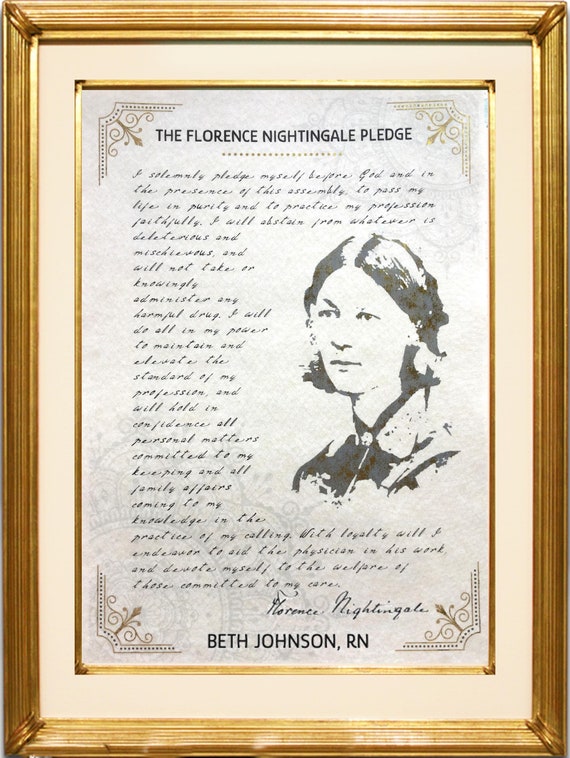 THE FLORENCE NIGHTINGALE PLEDGE
I solemnly pledge myself before God and in
the presence of this assembly, to pass my
life in purity and to practice my profession
faithfully. I will abstain from whatever is
deleterious and
mischievous, and
will not take or
knowingly
administer any
harmful drug. I will
do all in my power
to maintain and
elevate the
standard of my
profession, and
will hold in
confidence all
personal matters
committed to my
keeping and all
family affairs
coming to my
knowledge in the
practice of my calling. With loyalty will I
endeavor to aid the physician in his work,
and devote myself to the welfare of
those committed to my care.
Florence Nightingale
BETH JOHNSON, RN